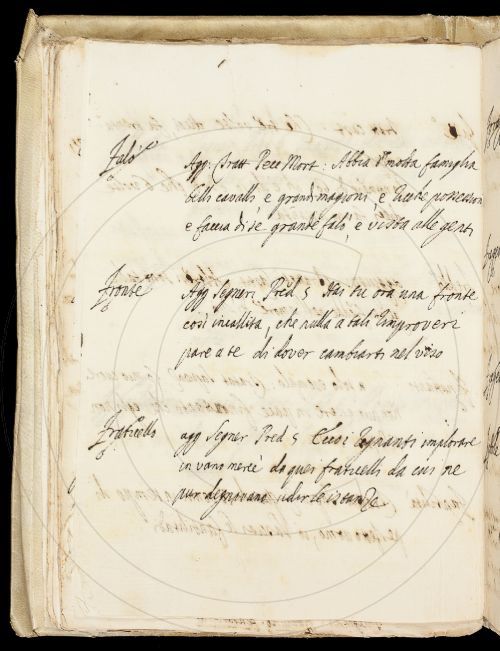 Falò
Agg. Tratt Pecc Mort: Abbia molta famiglia
belli cavalli, e grandi magioni, e ricche possession
e faccia di se grande falò, e vista alle genti
Fronte
Agg Segneri Pred 5 Hai tu ora una fronte
così incallita, che nulla a tali improveri
pare a te di dover cambiarti nel viso
Fraticello
agg Segner Pred 5 Regnanti implorare
in vano mercè da quei fraticelli da cui ne
pur degnavano udir le istanze